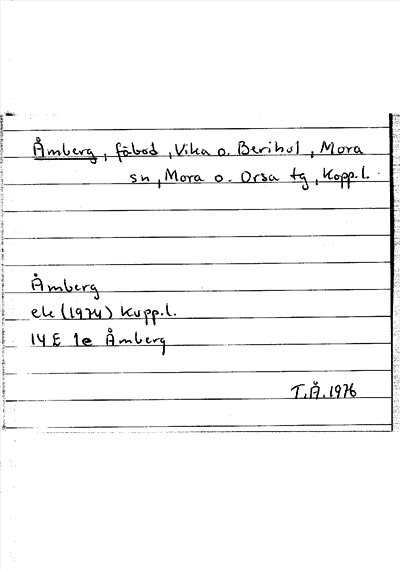 Åmberg, fäbod, Vika o. Berihol, Mora
sn, Mora o. Orsa tg, Kopp.l.
Åmberg
ek (1974) Kopp.l.
14 E 1e Åmberg
T.Å. 1976